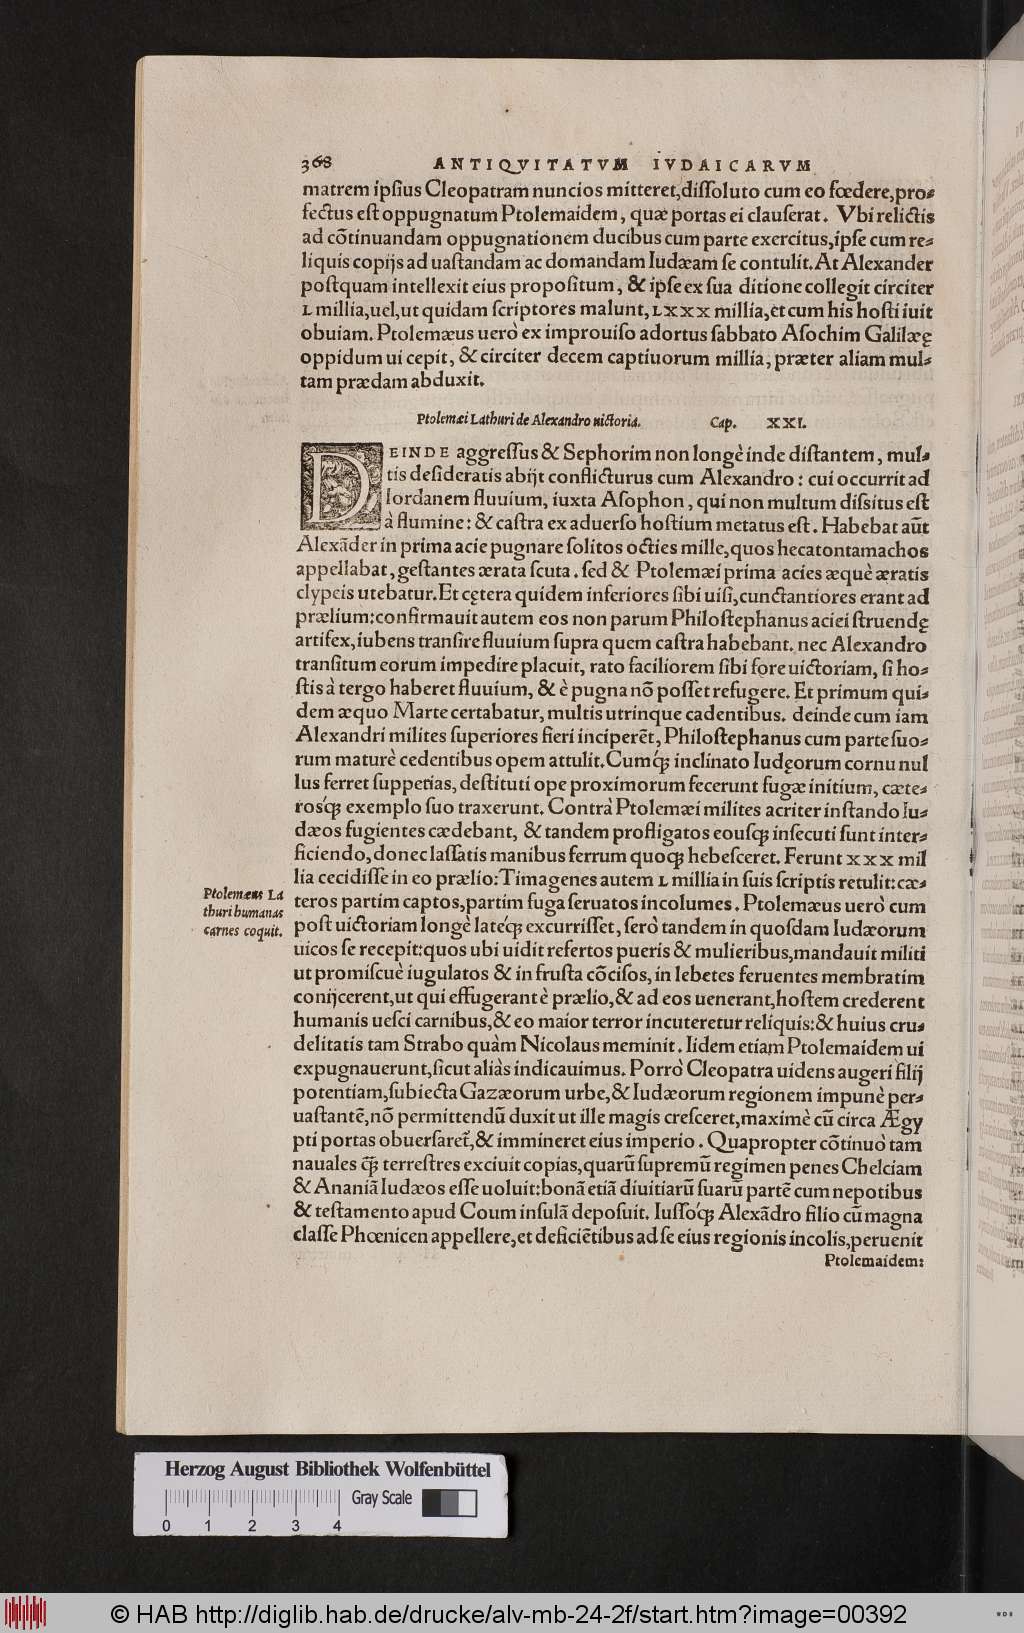 368 ANTIQVITATVM IVDAICARVM
matrem ipsius Cleopatram nuncios mitteret, dissoluto cum eo fœdere, pro-
fectus est oppugnatum Ptolemaidem, quæ portas ei clauserat. Vbi relictis
ad cõtinuandam oppugnationem ducibus cum parte exercitus, ipse cum re-
liquis copijs ad uastandam ac domandam Iudæam se contulit. At Alexander
postquam intellexit eius propositum, & ipse ex sua ditione collegit circiter
L millia, uel, ut quidam scriptores malunt, LXXX millia, et cum his hosti iuit
obuiam. Ptolemæus uerò ex improuiso adortus sabbato Asochim Galilæę
oppidum ui cepit, & circiter decem captiuorum millia, præter aliam mul-
tam prædam abduxit.
Ptolemæi Lathuri de Alexandro uictoria. Cap. XXI.
DEINDE aggressus & Sephorim non longè inde distantem, mul-
tis desideratis abijt conflicturus cum Alexandro: cui occurrit ad
Iordanem fluuium, iuxta Asophon, qui non multum dissitus est
à flumine: & castra ex aduerso hostium metatus est. Habebat aũt
Alexãder in prima acie pugnare solitos octies mille, quos hecatontamachos
appellabat, gestantes ærata scuta. sed & Ptolemæi prima acies æquè æratis
clypeis utebatur. Et cętera quidem inferiores sibi uisi, cunctantiores erant ad
prælium: confirmauit autem eos non parum Philostephanus aciei struendę
artifex, iubens transire fluuium supra quem castra habebant. nec Alexandro
transitum eorum impedire placuit, rato faciliorem sibi fore uictoriam, si ho-
stis à tergo haberet fluuium, & è pugna nõ posset refugere. Et primum qui-
dem æquo Marte certabatur, multis utrinque cadentibus. deinde cum iam
Alexandri milites superiores fieri inciperẽt, Philostephanus cum parte suo-
rum maturè cedentibus opem attulit. Cumq́ꝫ inclinato Iudęorum cornu nul
lus ferret suppetias, destituti ope proximorum fecerunt fugæ initium, cæte-
rosq́ꝫ exemplo suo traxerunt. Contrà Ptolemæi milites acriter instando Iu-
dæos fugientes cædebant, & tandem profligatos eousqꝫ insecuti sunt inter-
ficiendo, donec lassatis manibus ferrum quoqꝫ hebesceret. Ferunt XXX mil
lia cecidisse in eo prælio: Timagenes autem L millia in suis scriptis retulit: cæ-
teros partim captos, partim fuga seruatos incolumes. Ptolemæus uerò cum
post uictoriam longè lateq́ꝫ excurrisset, serò tandem in quosdam Iudæorum
uicos se recepit: quos ubi uidit refertos pueris & mulieribus, mandauit militi
ut promiscuè iugulatos & in frusta cõcisos, in lebetes feruentes membratim
conijcerent, ut qui effugerant è prælio, & ad eos uenerant, hostem crederent
humanis uesci carnibus, & eo maior terror incuteretur reliquis: & huius cru-
delitatis tam Strabo quàm Nicolaus meminit. Iidem etiam Ptolemaidem ui
expugnauerunt, sicut aliàs indicauimus. Porrò Cleopatra uidens augeri filij
potentiam, subiecta Gazæorum urbe, & Iudæorum regionem impunè per-
uastantẽ, nõ permittendũ duxit ut ille magis cresceret, maximè cũ circa Ægy
pti portas obuersaret̃, & immineret eius imperio. Quapropter cõtinuò tam
nauales q̃ꝫ terrestres exciuit copias, quarũ supremũ regimen penes Chelciam
& Ananiã Iudæos esse uoluit: bonã etiã diuitiarũ suarũ partẽ cum nepotibus
& testamento apud Coum insulã deposuit. Iussoq́ꝫ Alexãdro filio cũ magna
classe Phœnicen appellere, et deficiẽtibus ad se eius regionis incolis, peruenit
Ptolemaidem:
Ptolemæus La
thuri humanas
carnes coquit.
Herzog August Bibliothek Wolfenbüttel
Gray Scale
0 1 2 3 4
© HAB http://diglib.hab.de/drucke/alv-mb-24-2f/start.htm?image=00392